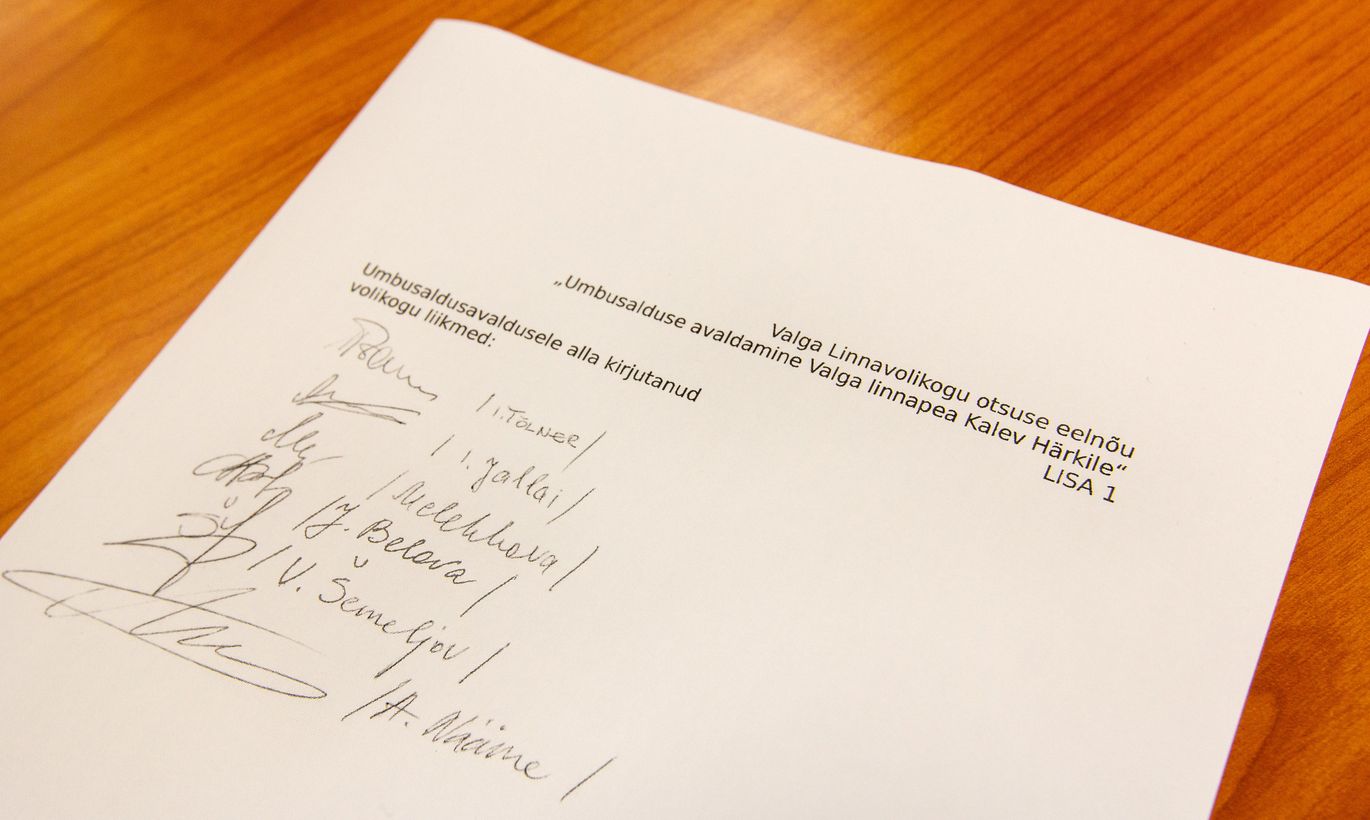 Valga Linnavolikogu otsuse eelnõu
„Umbusalduse avaldamine Valga linnapea Kalev Härkile“
LISA 1
Umbusaldusavaldusele alla kirjutanud
volikogu liikmed:
/ I. TÕLNER /
/ I. Jallai /
/ Melehhova /
/ J. Belova /
/ V. Šemeljov /
/ A. Nääme /